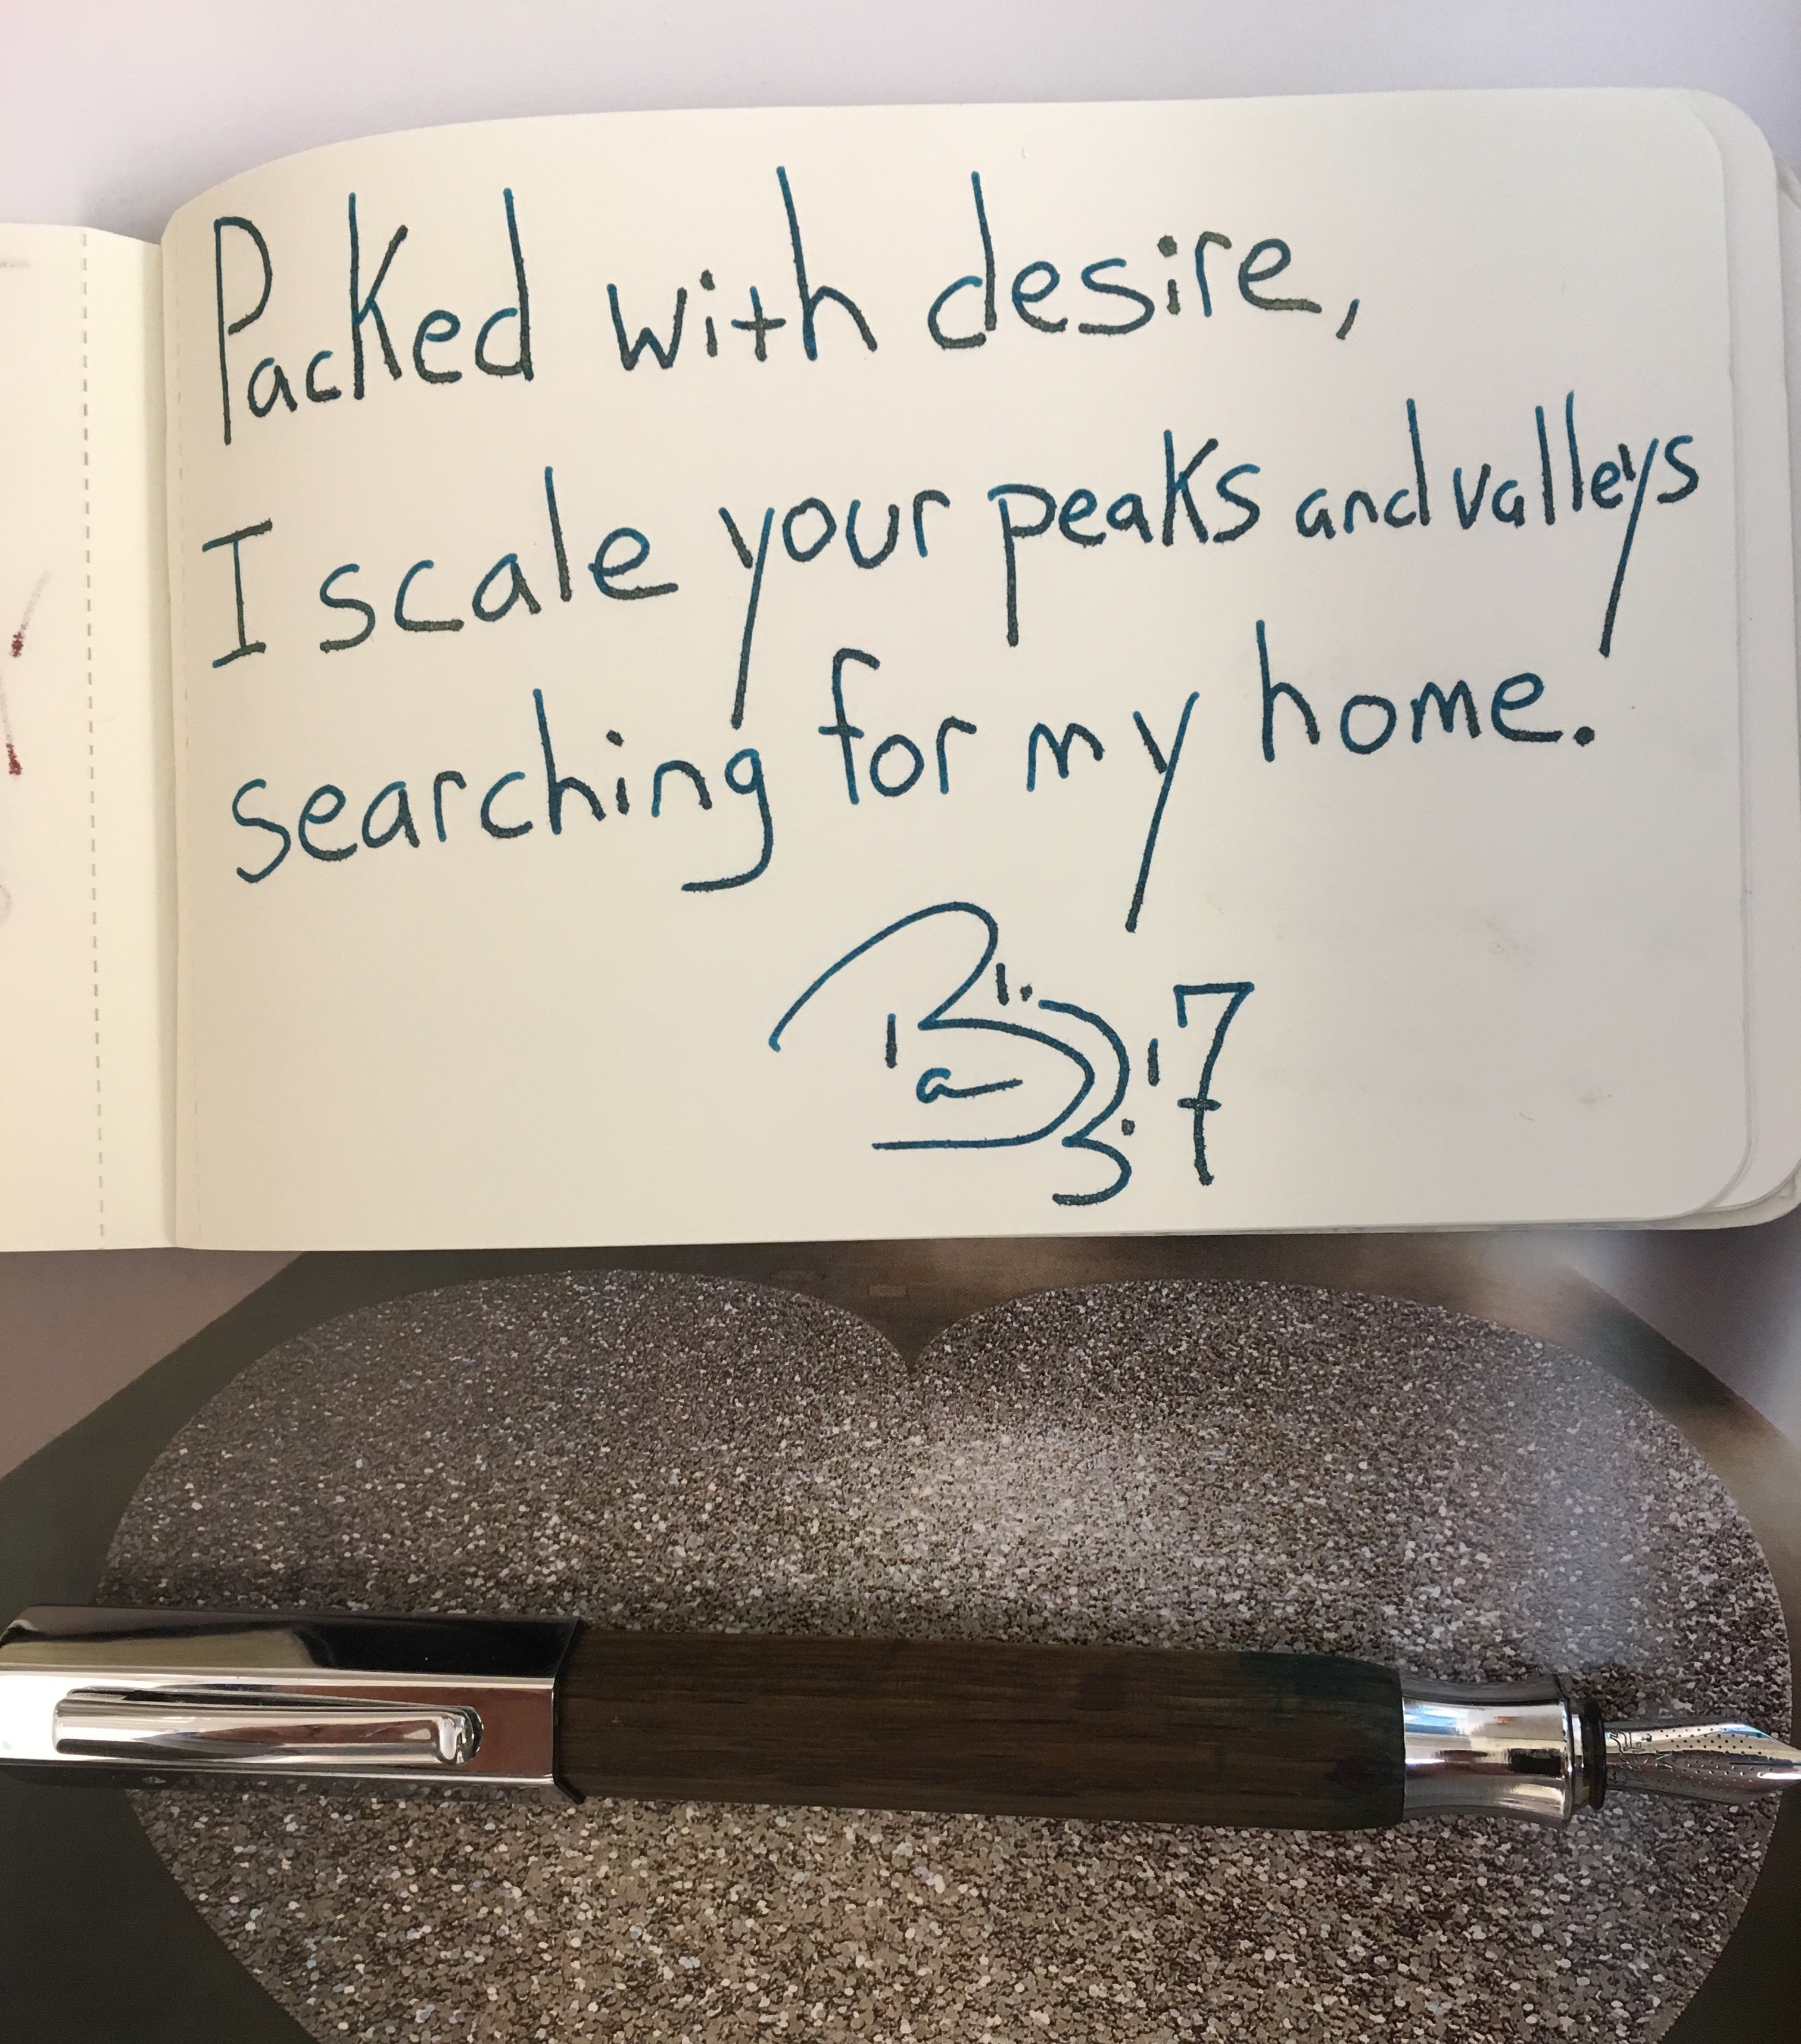 Packed with desire,
I scale your peaks and valleys
searching for my home.